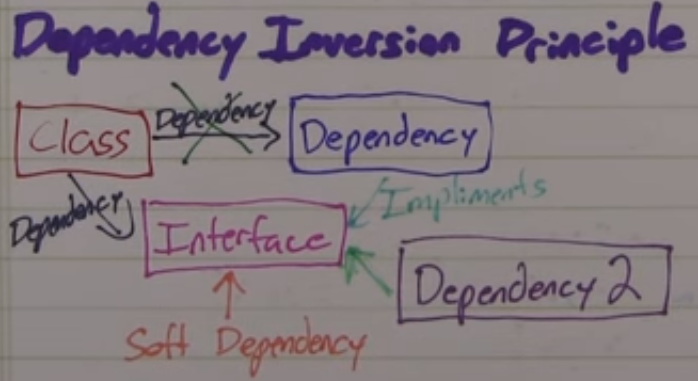 Dependency Inversion Principle
Class
Dependency
Dependency
Dependency
Impliments
Interface
Dependency 2
Soft Dependency